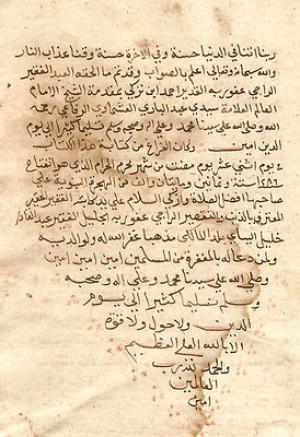 ربنا اتنا في الدنيا حسنة وفي الاخرة حسنة وقنا عذاب النار
والله سبحانه وتعالى اعلم بالصواب وقد تم ما الحقه العبد الفقير
الراجي عفو ربه القدير احمد ابن تركي بمقدمة الشيخ الامام
العالم العلامة سيدي عبد الباري العشماوي الرفاعي رحمه
الله وصلى الله على سيدنا محمد وعلى اله وصحبه وسلم تسليما كثيرا الى يوم
الدين امين وكان الفراغ من كتابة هذا الكتاب
يوم اثني عشر يوم مضت من شهر محرم الحرام الذي هو افتتاح
سنة وثمانين ومايتان والف من الهجرة النبوية على
صاحبها افضل الصلاة وازكى السلام على يد كاتبه الفقير الحقير
المعترف بالذنب والتقصير الراجي عفو ربه الجليل الفقير عبد القادر
خليل بلدا المالكي مذهبا غفر الله له ولوالديه
ولمن دعا له بالمغفرة من المسلمين امين امين امين
وصلى الله على سيدنا محمد وعلى اله وصحبه
وسلم تسليما كثيرا الى يوم
الدين ولا حول ولا قوة
الا بالله العلي العظيم
والحمد لله رب
العالمين
امين